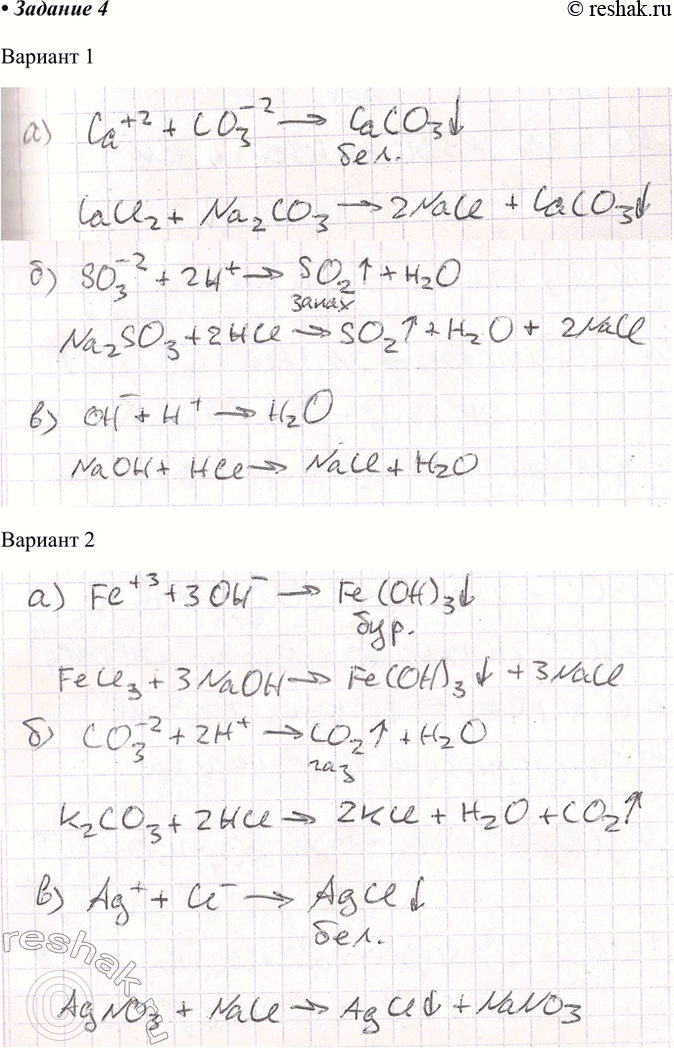 • Задание 4
© reshak.ru
Вариант 1
а) Ca⁺² + CO₃⁻² → CaCO₃↓
бел.
CaCl₂ + Na₂CO₃ → 2NaCl + CaCO₃↓
б) SO₃⁻² + 2H⁺ → SO₂↑ + H₂O
запах
Na₂SO₃ + 2HCl → SO₂↑ + H₂O + 2NaCl
в) OH⁻ + H⁺ → H₂O
NaOH + HCl → NaCl + H₂O
Вариант 2
а) Fe⁺³ + 3OH⁻ → Fe(OH)₃↓
бур.
FeCl₃ + 3NaOH → Fe(OH)₃↓ + 3NaCl
б) CO₃⁻² + 2H⁺ → CO₂↑ + H₂O
газ
K₂CO₃ + 2HCl → 2KCl + H₂O + CO₂↑
в) Ag⁺ + Cl⁻ → AgCl↓
бел.
reshak.ru
©
AgNO₃ + NaCl → AgCl↓ + NaNO₃